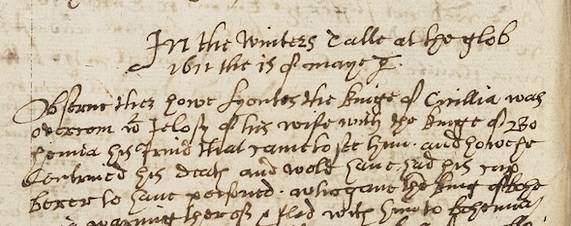 In the Winters Talle at the glob
1611 the 15 of maye ☿.
Observe ther howe Lyontes the kinge of Cicillia was
overcom wt Jelosy of his wife with the kinge of Bo
hemia his frind that came to see him. and howe he
Contrived his death and wold have had his cup
berer to have poisoned. who gave the king of bohe
warning therof & fled with him to bohemia